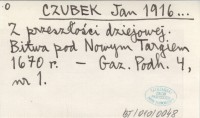 CZUBEK Jan 1916...
Z przeszłości dziejowej.
Bitwa pod Nowym Targiem
1670 r. — Gaz. Podh. 4,
nr 1.
BJ/010/0048